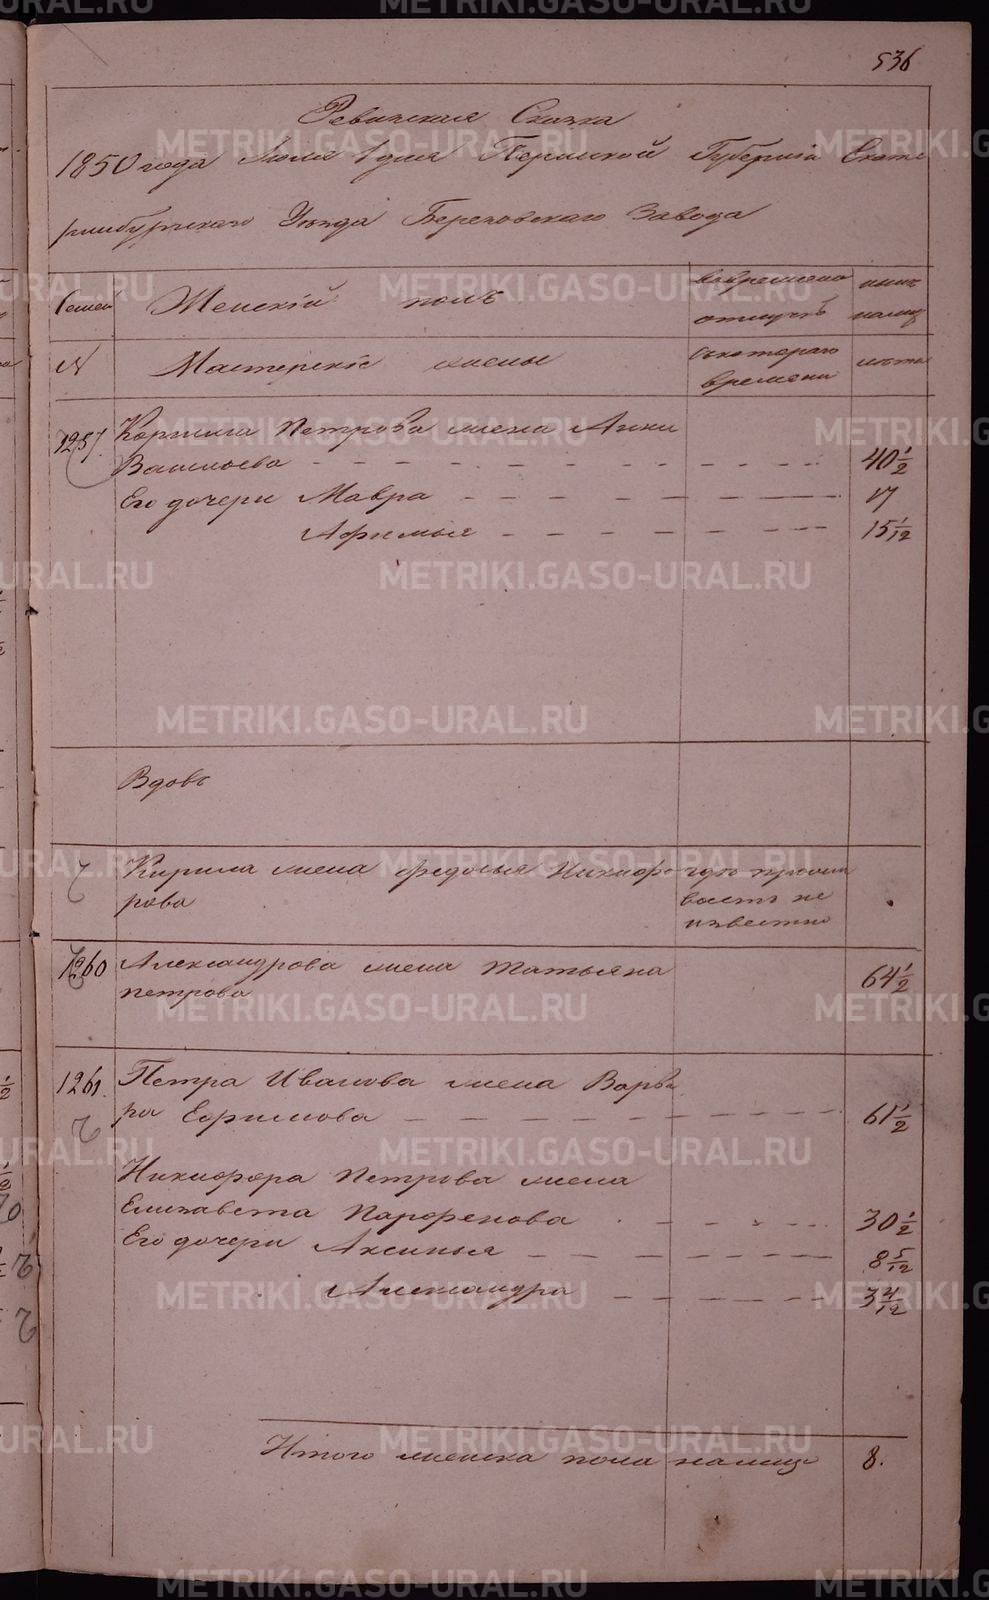 536
Ревизская Сказка
1850 года Июля 1 дня Пермской Губернiи Екате
ринбургскаго Уѣзда Березовскаго Завода
Семей Женскiй полъ вовременно отлучкѣ нынѣ налиц
N Мастерскiе жены съкотораго времени лѣта
1257. Корнила Петрова жена Анна
Васильева 40 1/2
Его дочери Мавра 17
Афимья 15 1/12
Вдовъ
Кирила жена Федосья Никифо гдѣ прожи
рова ваетъ не
известно
1260 Александрова жена Татьяна
Петрова 64 1/2
1261. Петра Иванова жена Варва
ра Ефимова 61 1/2
Никифора Петрова жена
Елизавета Парфенова 30 1/2
Его дочери Аксинья 8 5/12
Александра 3 4/12
Итого женска пола налицо 8.
METRIKI.GASO-URAL.RU